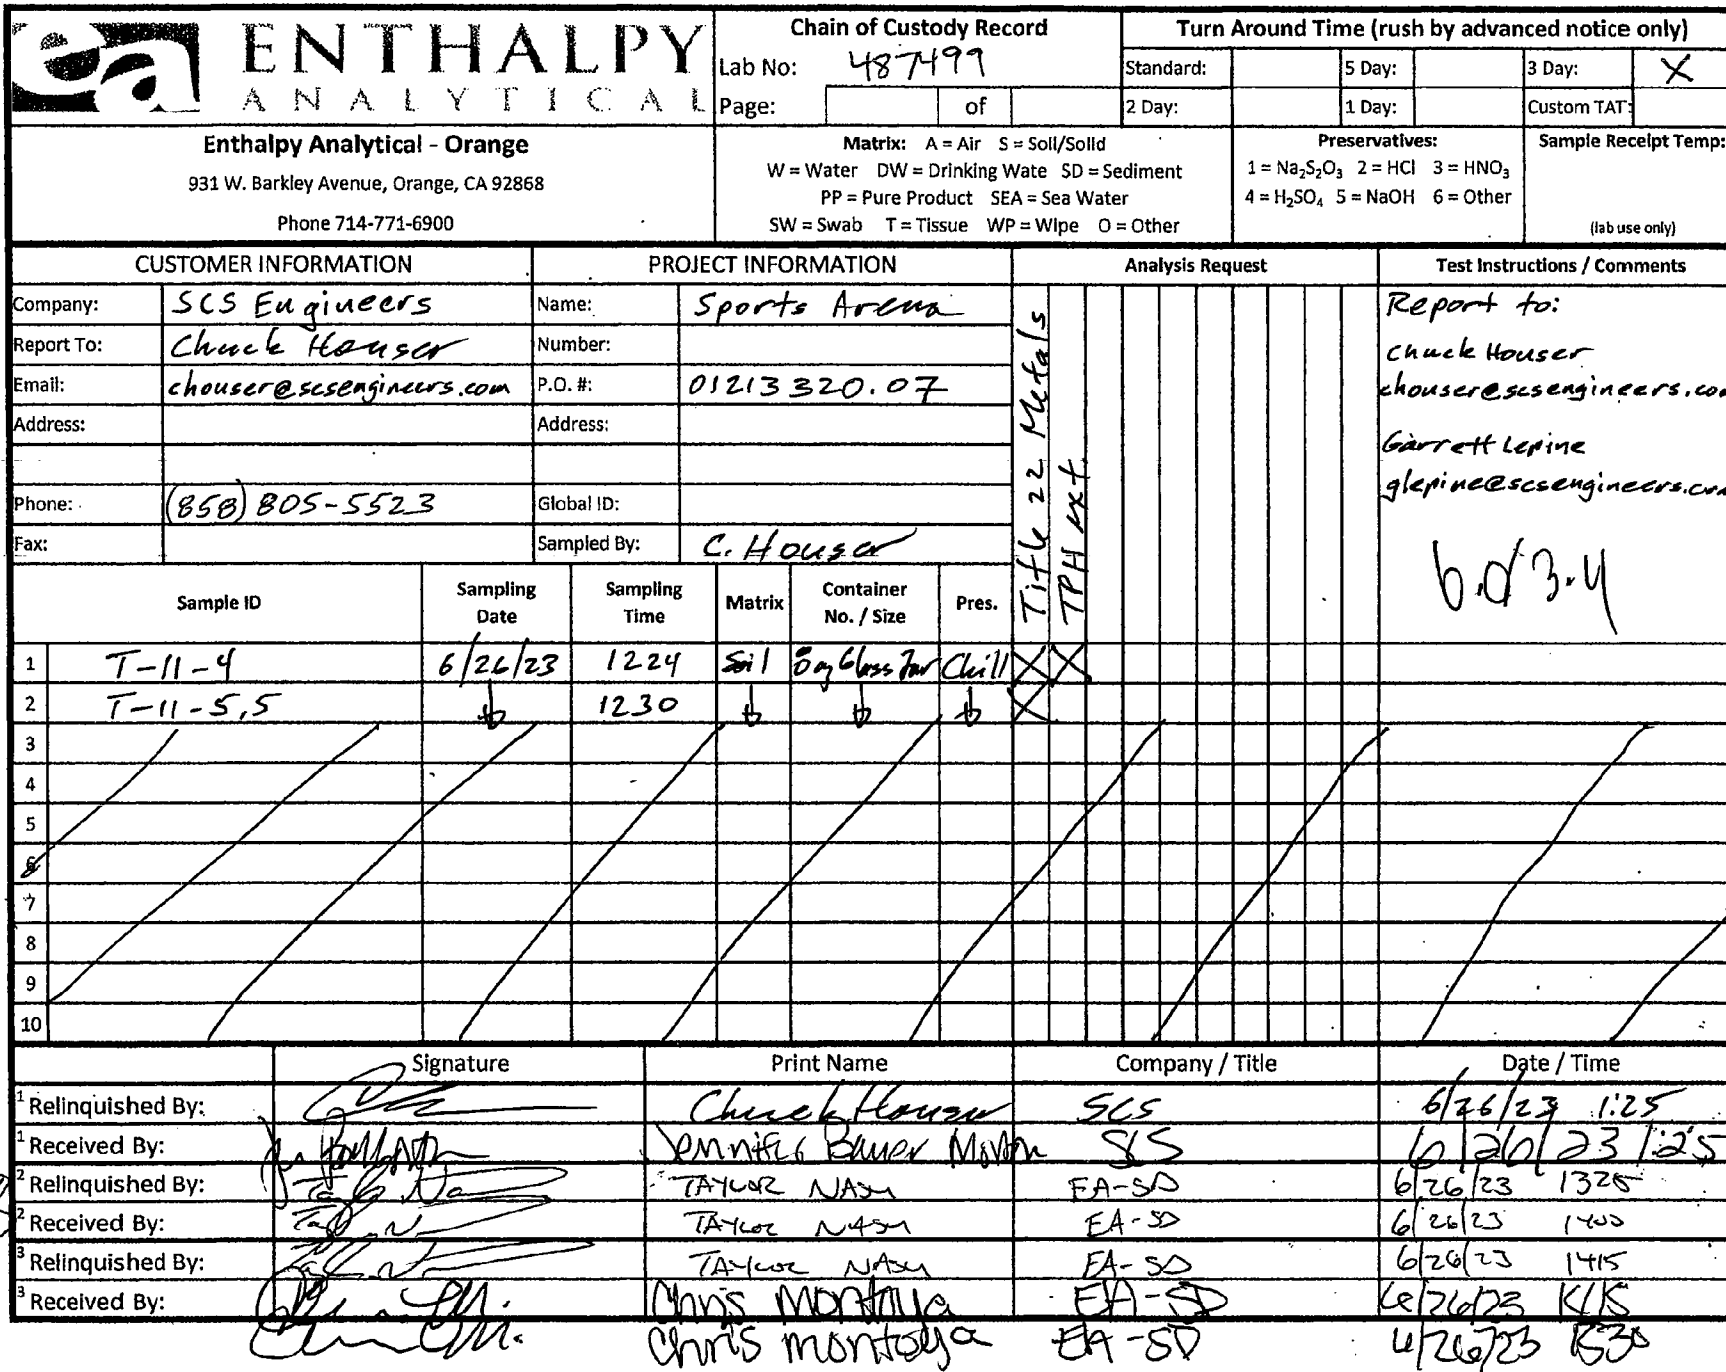 ea ENTHALPY
ANALYTICAL
Chain of Custody Record
Lab No: 487499
Page: of
Turn Around Time (rush by advanced notice only)
Standard: 5 Day: 3 Day: X
2 Day: 1 Day: Custom TAT:
Enthalpy Analytical - Orange
931 W. Barkley Avenue, Orange, CA 92868
Phone 714-771-6900
Matrix: A = Air S = Soil/Solid
W = Water DW = Drinking Wate SD = Sediment
PP = Pure Product SEA = Sea Water
SW = Swab T = Tissue WP = Wipe O = Other
Preservatives:
1 = Na₂S₂O₃ 2 = HCl 3 = HNO₃
4 = H₂SO₄ 5 = NaOH 6 = Other
Sample Receipt Temp:
(lab use only)
CUSTOMER INFORMATION PROJECT INFORMATION Analysis Request Test Instructions / Comments
Company: SCS Engineers Name: Sports Arena
Report To: Chuck Houser Number:
Email: chouser@scsengineers.com P.O. #: 01213320.07
Address: Address:
Phone: (858) 805-5523 Global ID:
Fax: Sampled By: C. Houser
Title 22 Metals
TPH ext.
Report to:
Chuck Houser
chouser@scsengineers.com
Garrett Lepine
glepine@scsengineers.com
6.0/3.4
Sample ID Sampling Date Sampling Time Matrix Container No. / Size Pres.
1 T-11-4 6/26/23 1224 Soil Glass Jar Chill X X
2 T-11-5.5 1230 X
3
4
5
6
7
8
9
10
Signature Print Name Company / Title Date / Time
1 Relinquished By: Chuck Houser SCS 6/26/23 1:25
1 Received By: Jennifer Bauer SCS 6/26/23 1:25
2 Relinquished By: TAYLOR NASH EA-SD 6/26/23 1325
2 Received By: TAYLOR NASH EA-SD 6/26/23 1400
3 Relinquished By: TAYLOR NASH EA-SD 6/26/23 1415
3 Received By: Chris Montoya EA-SD 6/26/23 1415
Chris Montoya EA-SD 6/26/23 1530